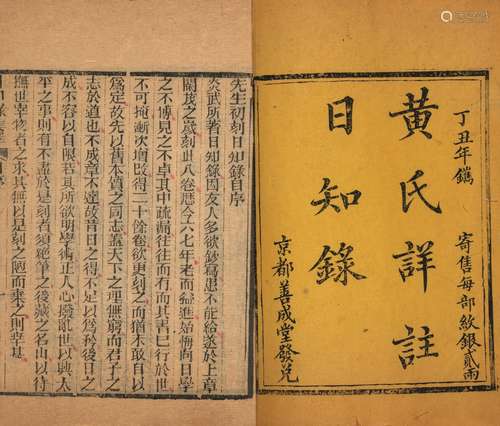 丁丑年鐫　寄售每部紋銀貳兩
黃氏詳註
日知錄
京都善成堂發兌
先生初刻日知錄自序
炎武所著日知錄因友人多欲鈔寫患不能給遂於上章
閹茂之歲刻此八卷歷今六七年老而益進始悔向日學
之不博見之不卓其中疏漏往往而有而其書已行於世
不可掩漸次增改得二十餘卷欲更刻之而猶不敢自以
為定故先以舊本質之同志蓋天下之理無窮而君子之
志於道也不成章不達故昔日之得不足以為矜後日之
成不容以自限若其所欲明學術正人心撥亂世以興太
平之事則有不盡於是刻者須絕筆之後藏之名山以待
撫世宰物者之求其無以是刻之陋而棄之則幸甚